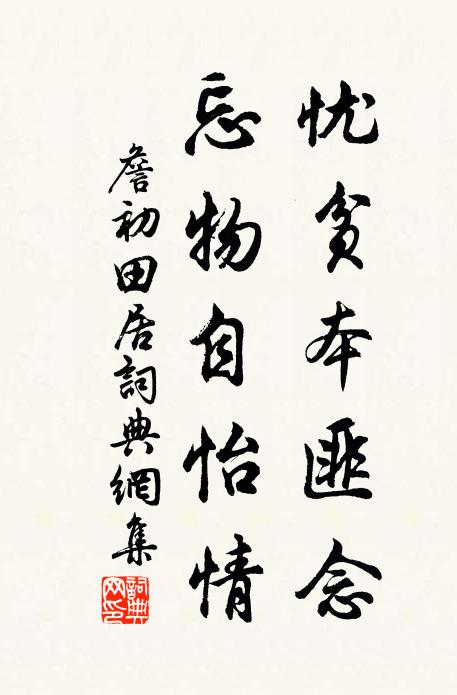 忧贫本匪念
忘物自怡情
詹初田居詞典網集
詞典网印